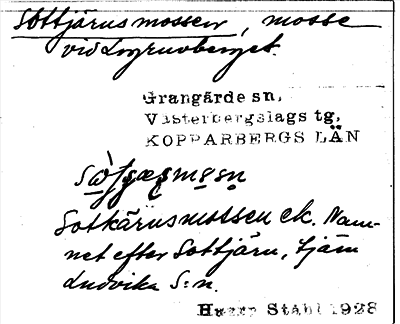 Sottjärnsmossen, mosse
vid Logruvberget.
Grangärde sn,
Västerbergslags tg,
KOPPARBERGS LÄN
Sotkärnsmossen ek. Nam-
net efter Sottjärn, tjärn
Ludvika S:n.
Harry Ståhl 1928